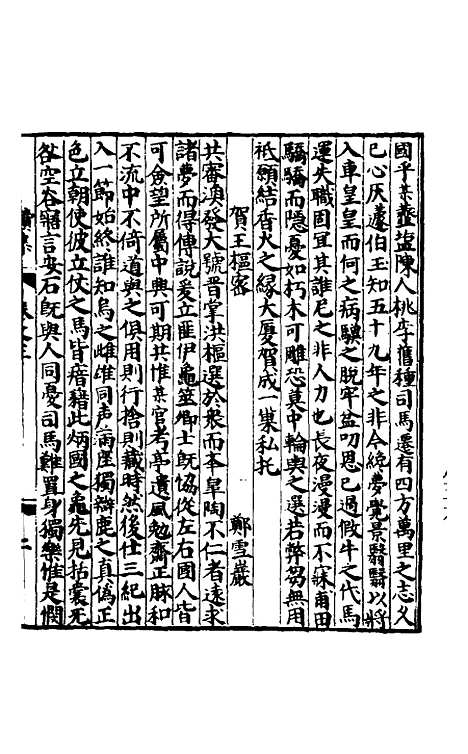 國乎柰虀鹽陳人桃李舊種司馬遷有四方萬里之志义
已心灰蘧伯玉知五十九年之非今纔夢覺景翳翳以將
入車皇皇而何之病驥之脫牢盆叨恩已過假牛之代馬
運失職固宜其誰尼之非人力也長夜漫漫而不寐甫田
驕驕而隱憂如朽木可雕恐莫中輪輿之選若弊芻無用
祇願結香火之緣大厦賀成一巢私托
賀王樞密 鄭雪巖
共審渙發大號晋掌洪樞選於衆而舉臯陶不仁者遠求
諸夢而得傅說爰立匪伊龜筮卿士旣協從左右國人皆
可僉望所屬中興可期共惟某官考亭遺風勉齋正脉和
不流中不倚道與之俱用則行捨則藏時然後仕三紀出
入一節始終誰知烏之雌雄同聲滿座獨辯鹿之真僞正
色立朝使彼立仗之馬皆瘖藉此炳國之龜先見括囊无
咎空谷寤言安石旣與人同憂司馬難置身獨樂惟是憫
卷之三
二